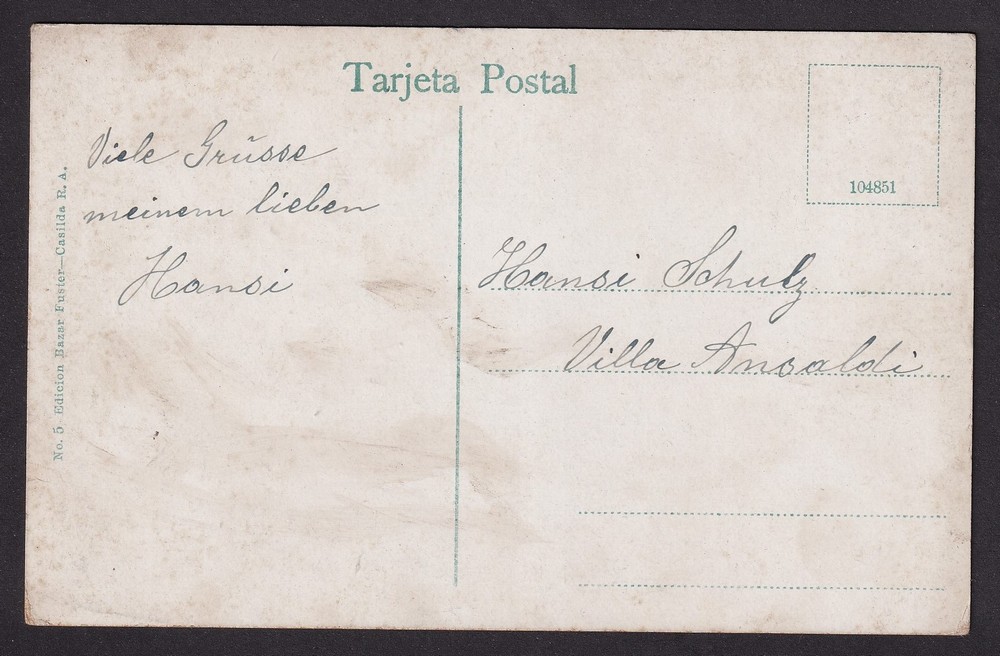 Tarjeta Postal
104851
Viele Grüsse
meinem lieben
Hansi
Hansi Schulz
Villa Ansaldi
No. 5 Edicion Bazar Fuster—Casilda R. A.